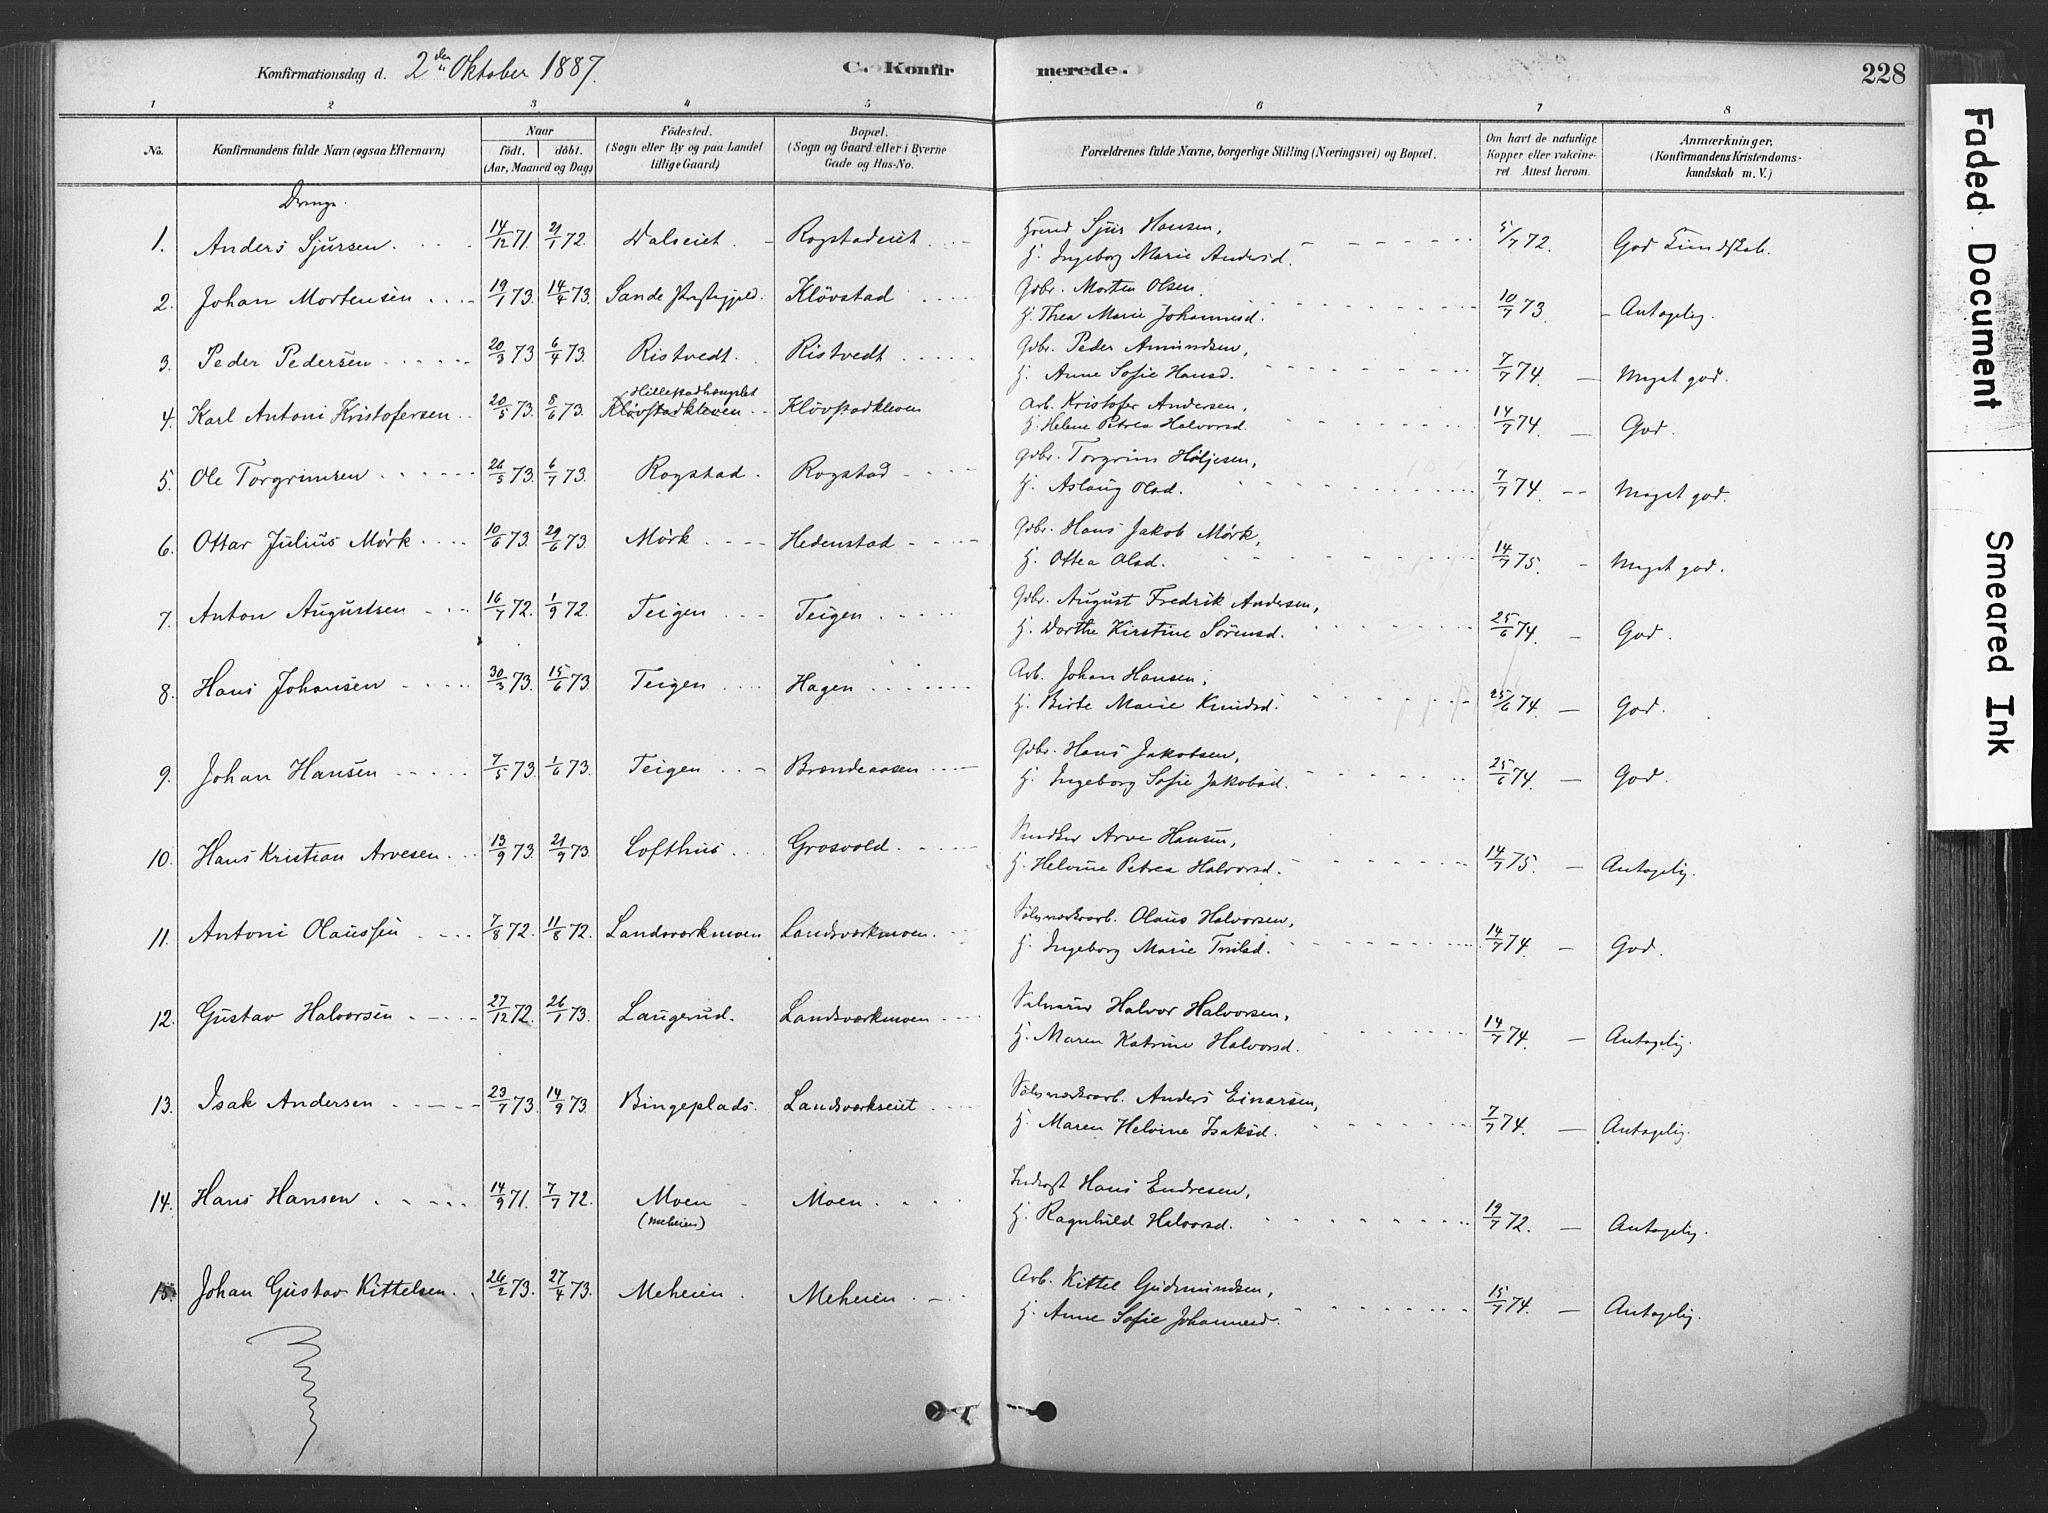 Konfirmationsdag d. 2den Oktober 1887. C. Konfirmerede. 228
1 2 3 4 5 6 7 8
No. Konfirmandens fulde Navn (ogsaa Efternavn) Naar født. døbt. (Aar, Maaned og Dag) Fødested. (Sogn eller By og paa Landet tillige Gaard) Bopæl. (Sogn og Gaard eller i Byerne Gade og Hus-No. Forældrenes fulde Navne, borgerlige Stilling (Næringsvei) og Bopæl. Om havt de naturlige Kopper eller vakcineret Attest herom. Anmærkninger. (Konfirmandens Kristendomskundskab m. V.)
Drenge.
1. Anders Sjursen 14/12 71. 21/1 72. Dalseiet Rogstadeiet Sjur Hansen, 5/7 72. God Kundskab.
H. Ingeborg Marie Andersd.
2. Johan Mortensen 19/1 73. 14/4 73. Sande Præstegjeld. Kløvstad Gdbr. Morten Olsen 10/7 73 Antagelig.
H. Thea Marie Johannesd.
3. Peder Pedersen 20/3 73 6/4 73. Ristvedt. Ristvedt Gdbr. Peder Amundsen, 7/7 74. Meget god.
H. Anne Sofie Hansd.
Hillestad
4. Karl Antoni Kristofersen 20/5 73. 8/6 73. Kløvstadkleven Kløvstadkleven Arb. Kristofer Andersen, 14/7 74. God.
H. Helene Petrea Halvorsd.
5. Ole Torgrimsen 26/5 73. 6/7 73. Rogstad. Rogstad Gdbr. Torgrim Høljesen, 7/7 74. Meget god.
H. Aslaug Olsd.
6. Ottar Julius Mørk 10/6 73. 29/6 73. Mørk Hedenstad Gdbr. Hans Jakob Mørk, 14/7 75. Meget god.
H. Ottea Olsd.
7. Anton Augustsen 16/7 72. 1/9 72. Teigen Teigen Gdbr. August Fredrik Andersen, 25/6 74. God.
H. Dorthe Kirstine Sørensd.
8. Hans Johansen 30/3 73. 15/6 73. Teigen Hagen Arb. Johan Hansen, 25/6 74. God.
H. Birte Marie Knudsd.
9. Johan Hansen 7/5 73. 1/6 73. Teigen Brændeaasen Gdbr. Hans Jakobsen, 25/6 74. God.
H. Ingeborg Sofie Jakobsd.
10. Hans Kristian Arvesen 13/9 73. 21/9 73. Lofthus Grosvold Arve Hansen, 14/7 75. Antagelig.
H. Helvine Petrea Halvorsd.
11. Antoni Olaussen 7/8 72. 11/8 72. Landsværkmoen Landsværkmoen. Sølvværksarb. Olaus Halvorsen, 14/7 74. God.
H. Ingeborg Marie Trulsd.
12. Gustav Halvorsen 27/12 72. 26/1 73. Laugerud. Landsværkmoen Halvor Halvorsen, 14/7 74. Antagelig.
H. Maren Katrine Halvorsd.
13. Isak Andersen 23/7 73. 14/9 73. Bingeplads. Landsværkseiet Sølvværksarb. Anders Einarsen, 7/7 74. Antagelig.
H. Maren Helvine Isaksd.
14. Hans Hansen 14/9 71. 7/7 72. Moen (Meheien) Moen Inderst Hans Endresen, 19/7 72. Antagelig.
H. Ragnhild Halvorsd.
15. Johan Gustav Kittelsen 26/2 73. 27/4 73. Meheien. Meheien Arb. Kittel Gudmundsen, 15/7 74. Antagelig.
H. Anne Sofie Johannesd.
Faded Document
Smeared Ink